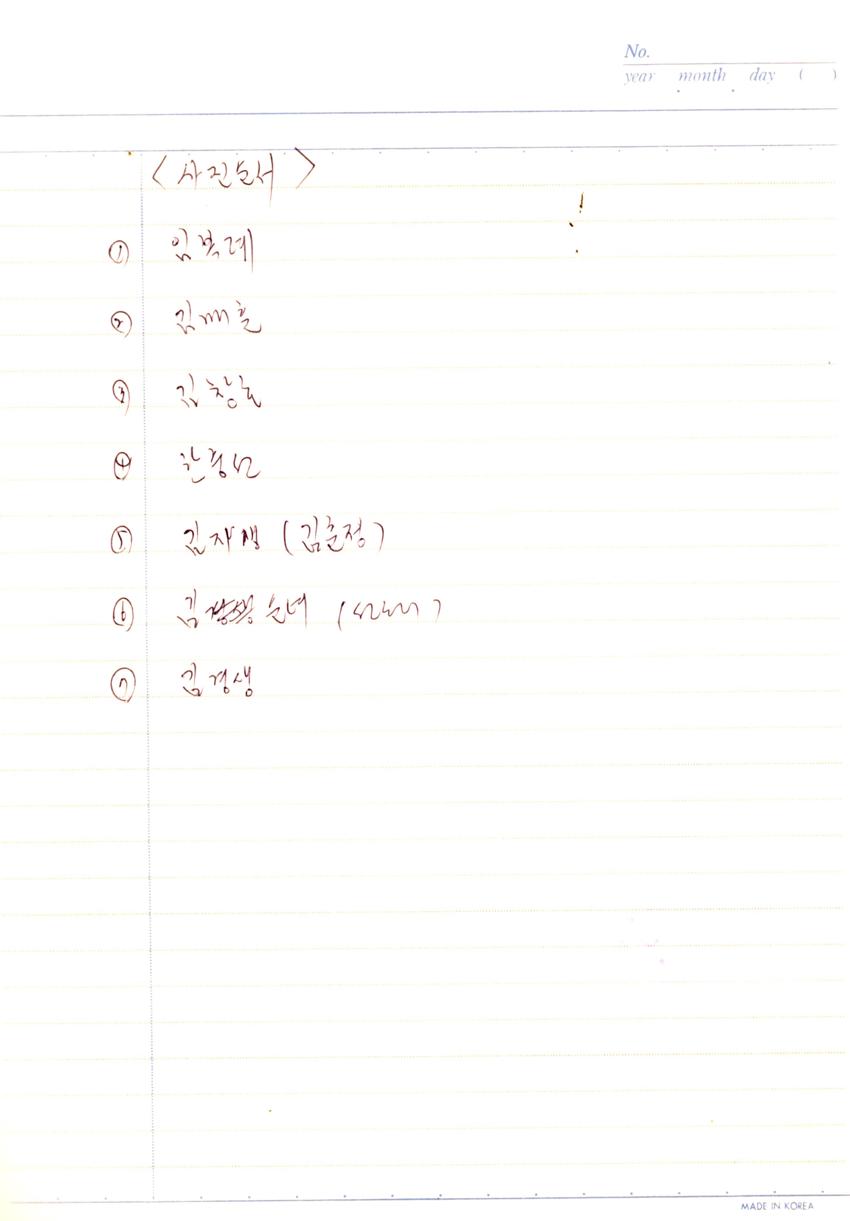 No.
year month day ( )
<사진순서>
① 임복례
②
③ 김창호
④
⑤ 김재생 (김춘정)
⑥ 김 순녀
⑦ 김경생
MADE IN KOREA